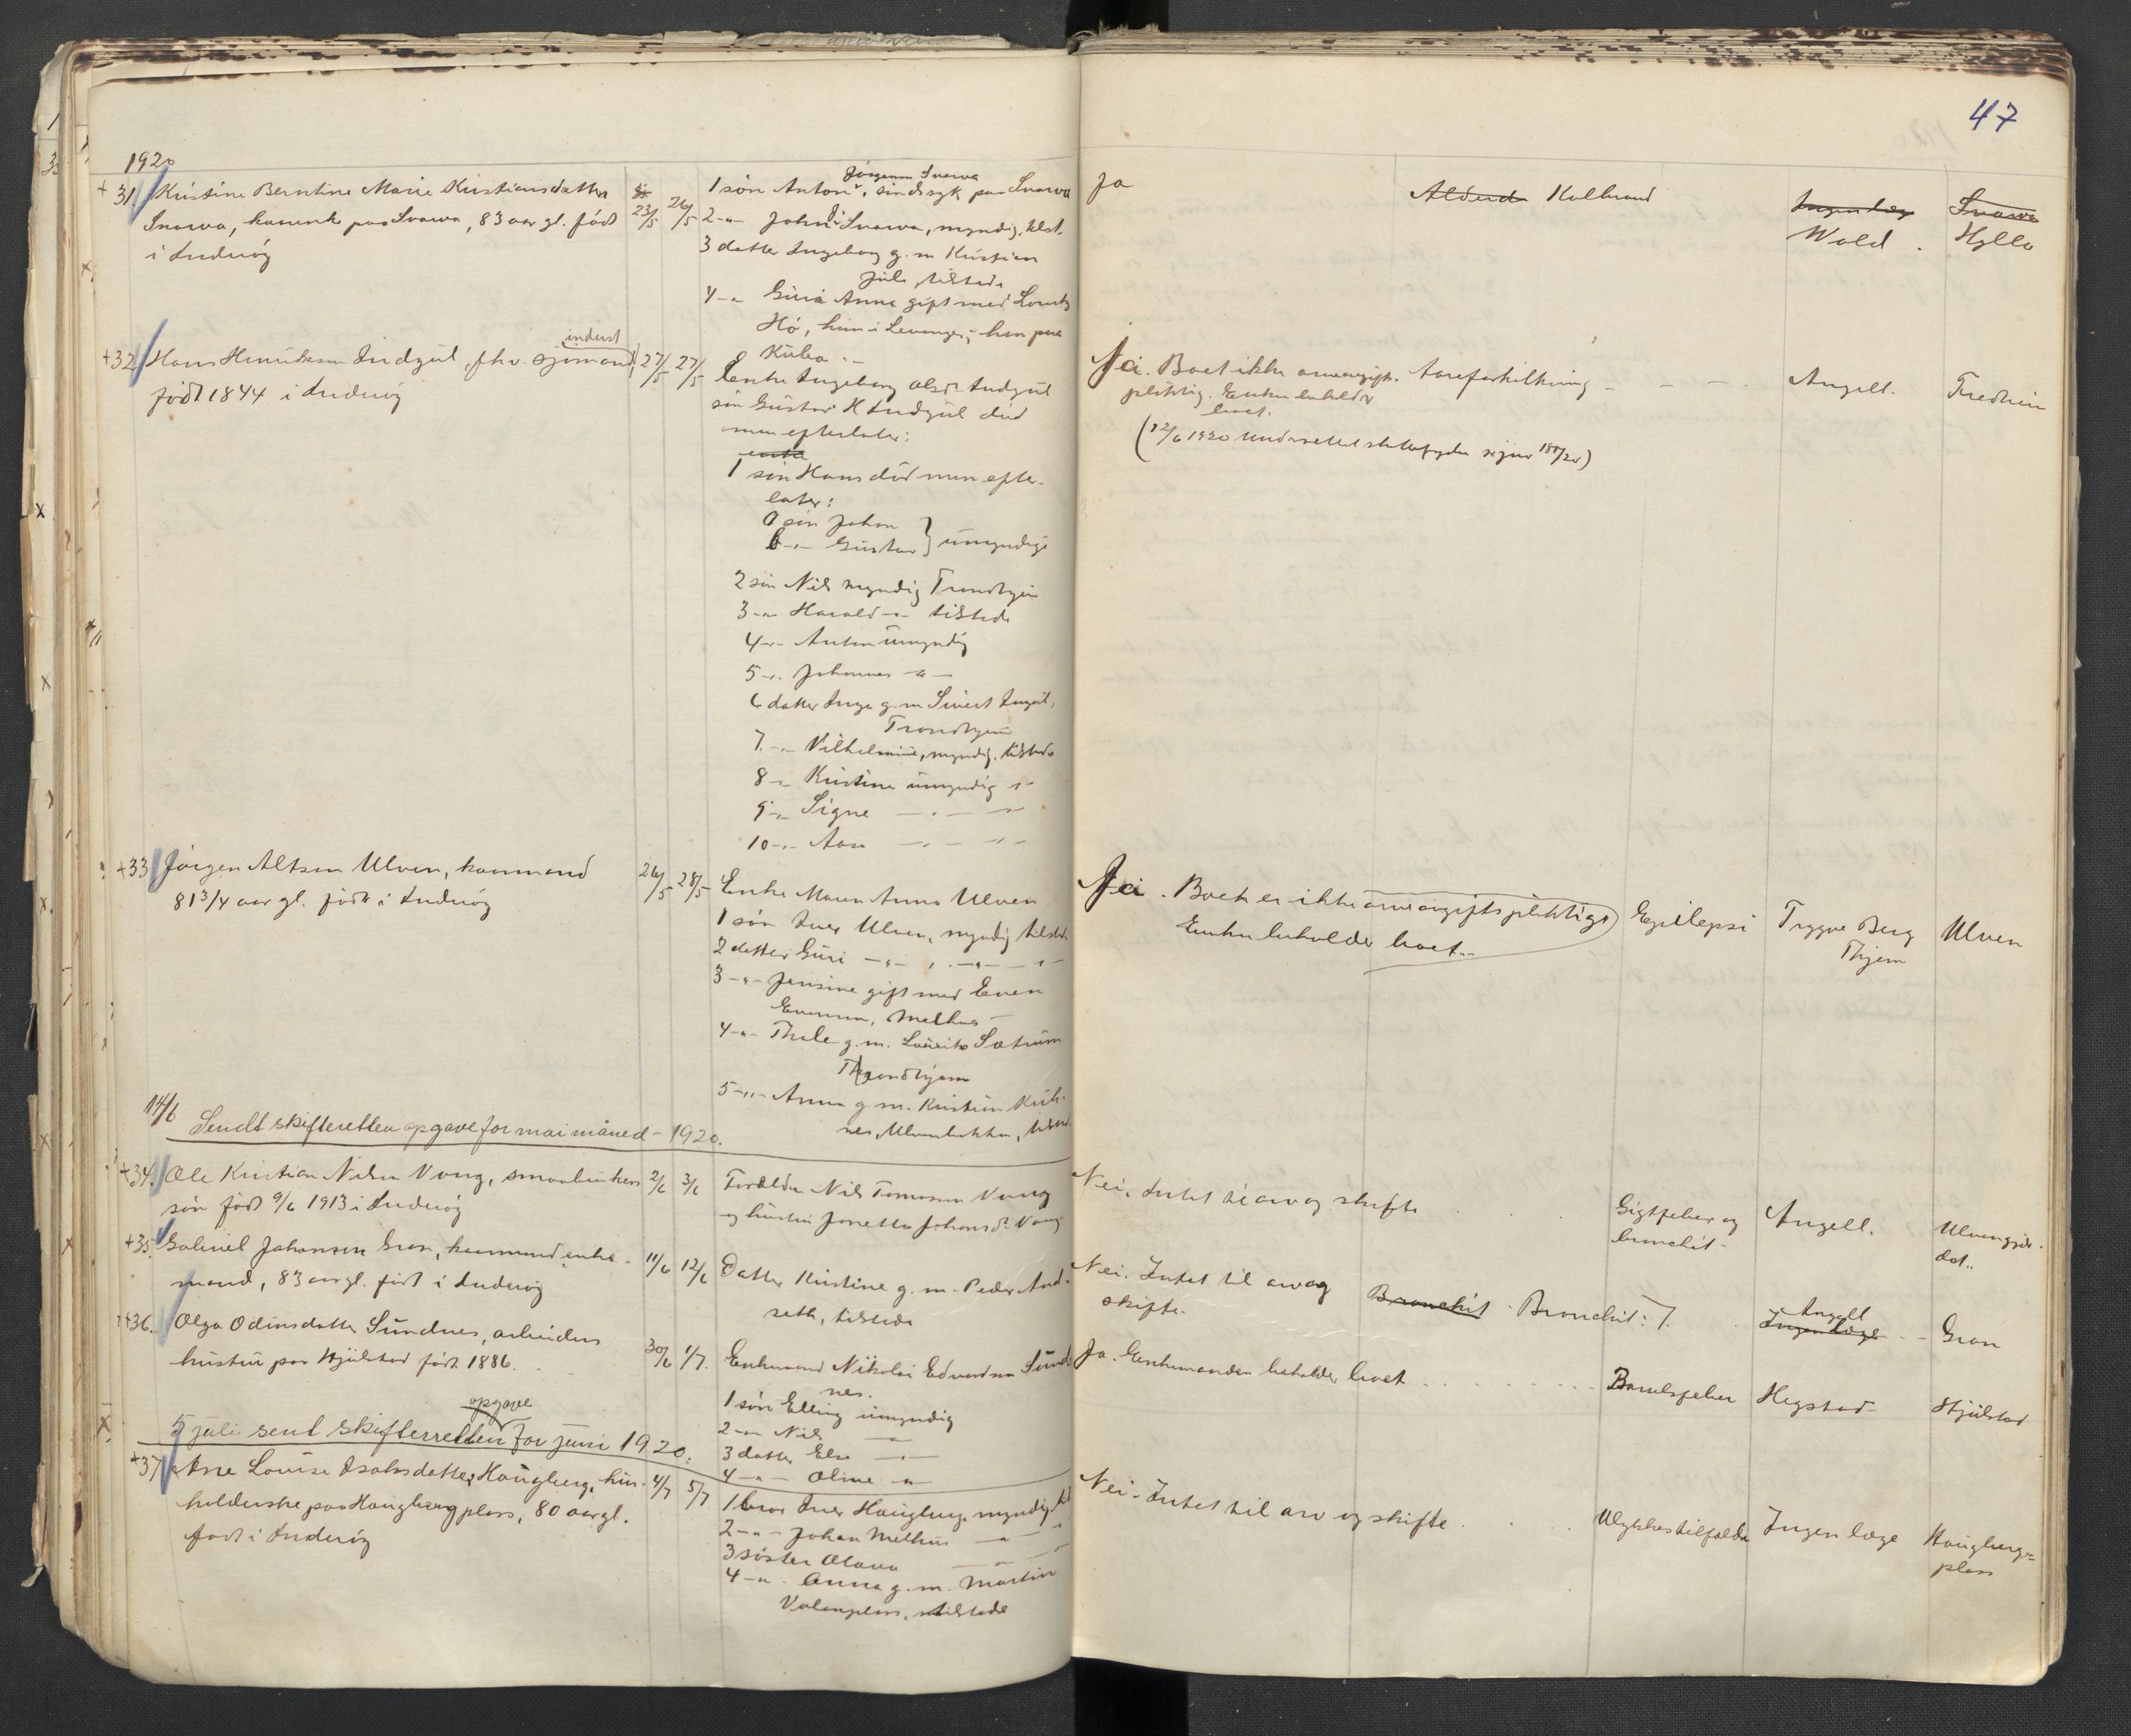 47
1920
+ 31 Kristine Berntine Marie Kristiansdatter
Svarva, kaarenke paa Svarva, 83 aar gl. født
i Inderøy
23/5 26/5
Jørgensen Svarva
1 søn Anton, sindssyk paa Svarva
2 -"- Johan Svarva, myndig, tilst.
3 datter Ingeborg g.m. Kristian
Jule, tilstede
4 -"- Guri Anna gift med
Hø, hun i Levanger, han paa
Kuba
Ja
Alderd Kolbrand
Ingen læge
Wold
Svarva
Hylla
+32 Hans Henriksen Indgul, fhv. sjømand
inderst
født 1844 i Inderøy
27/5 27/5
Enke Ingeborg Olsd. Indgul
søn Gustav H Indgul død
men efterlater:
1 søn Hans død men efter-
later:
a søn Johan
b -"- Gustav } umyndige
2 søn Nils myndig Trondhjem
3 -"- Harald -"- tilstede
4 -"- Anton umyndig
5 -"- Johannes -"-
6 datter Inga g.m. Sivert Ingul,
Trondhjem
7 -"- Vilhelmine, myndig, tilstede
8 -"- Kristine umyndig -"-
9 -"- Signe -"- -"-
10 -"- Aase -"- -"-
Nei. Boet ikke arveavgift-
pliktig. Enken beholder
boet.
Aareforkalkning
(12/6 1920
Angell.
+33 Jørgen Altsen Ulven, kaarmand
81 3/4 aar gl. født i Inderøy
26/5 28/5
Enke Maren Anna Ulven
1 søn Iver Ulven, myndig tilstede
2 datter Guri -"- -"- -"-
3 -"- Jensine gift med Even
Evensen, Melhus
4 -"- Thale g.m. Lauritz Sætrum
Throndhjem
5 -"- Anna g.m. Kristian
nes, Ulvenbakken, tilsted.
Nei. Boet er ikke arveavgiftspliktigt
Enken beholder boet.
Epilepsi
Trygve Berg
Thjem
Ulven
14/6
Sendt skifteretten opgave for mai måned - 1920.
+34. Ole Kristian Nilsen Vang, smaabrukers
søn født 9/6 1913 i Inderøy
2/6 3/6
Forældre Nils Tomassen Vang
og hustru Jonetta Johansd. Vang
Nei. Intet til arv og skifte
Gigtfeber og
bronchit
Angell.
+35. Gabriel Johansen Gran, kaarmand enke-
mand, 83 aar gl. født i Inderøy
11/6 12/6
Datter Kristine g.m. Peder And-
seth, tilstede
Nei. Intet til arv og
skifte
Bronchit Bronchit: 7.
Angell
Ingen læge
Gran
+36. Olga Odinsdatter Sundnes, arbeiders
hustru paa Hjulstad født 1886.
30/6 1/7.
Enkemand Nikolai Edvardsen Sund-
nes.
1 søn Elling umyndig
2 -"- Nils -"-
3 datter Else -"-
4 -"- Oline -"-
Ja. Enkemanden beholder boet
Barselfeber
Hegstad
Hjulstad
opgave
5 juli sent skifterretten for juni 1920.
+37 Ane Louise Isaksdatter Haugberg, hus-
holderske paa Haugberg plass, 80 aar gl.
født i Inderøy
4/7 5/7
1 bror Iver Haugberg, myndig, til
2 -"- Johan Melhus -"- -"-
3 søster Olava -"- -"-
4 -"- Anna g.m. Martin
Valanplass, tilstede
Nei. Intet til arv og skifte
Ulykkestilfælde
Ingen læge
Haugberg=
plass